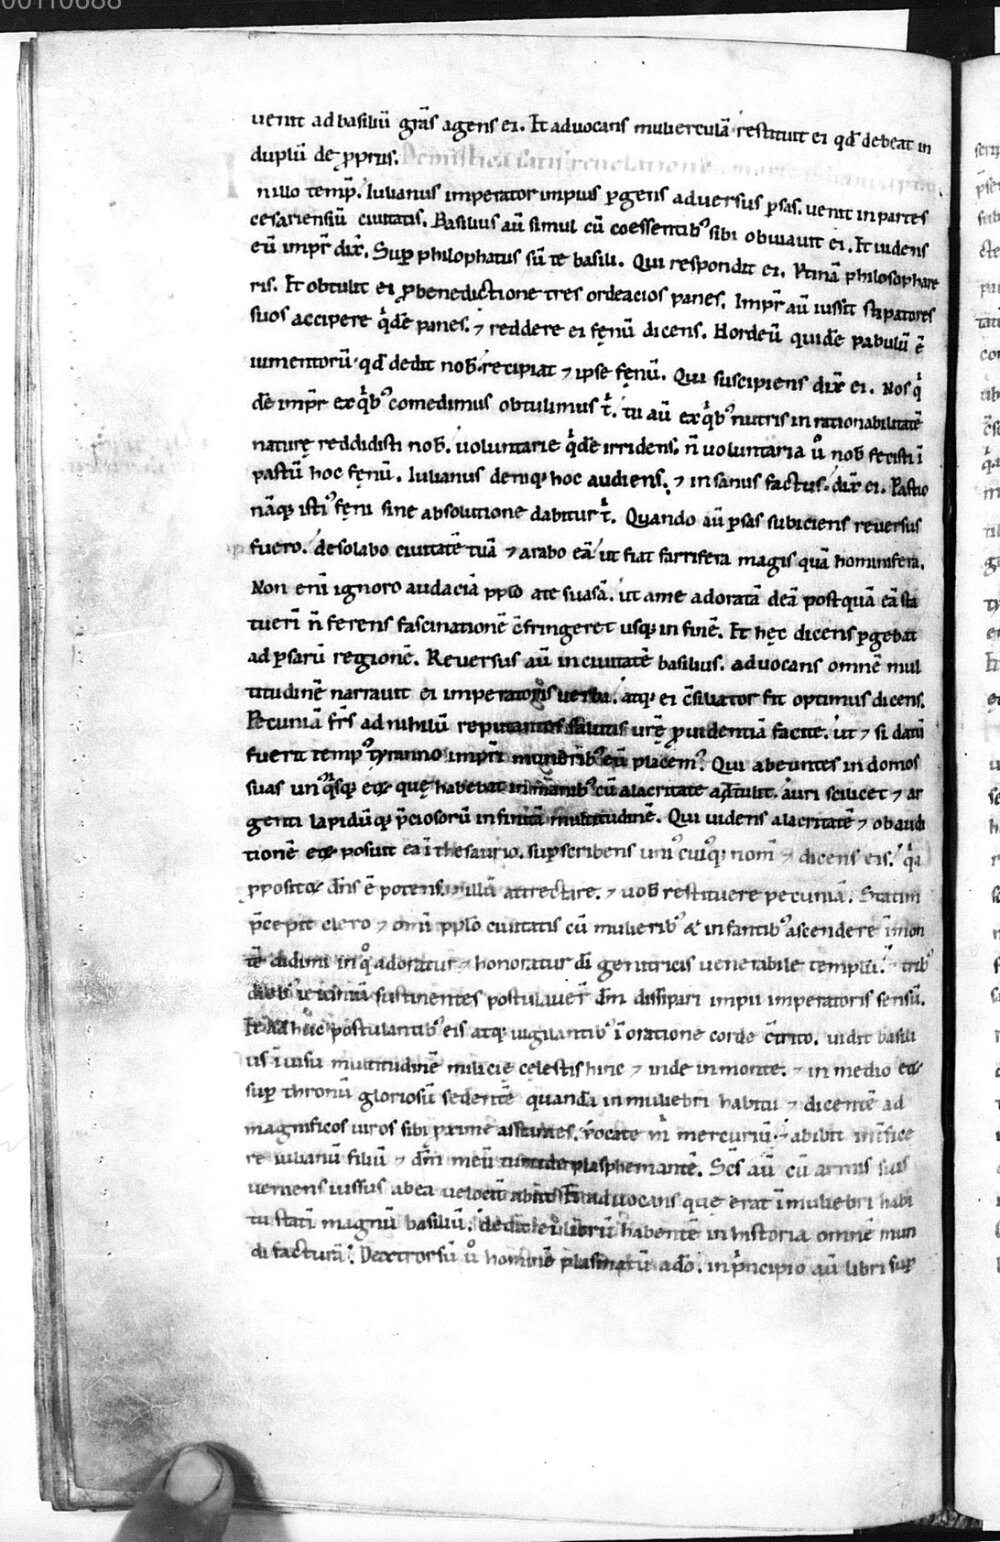 00110688
uenit ad basiliū grās agens ei. Et aduocans mulierculā restituit ei qd̄ debeat in
duplū de ꝓpriis. De mistica
nillo temp̄. Iulianus imperator impius ꝑgens aduersus ꝑsas. uenit in partes
cesariensiū ciuitatis. Basilius aū simul cū coessentibꝰ sibi obuiauit ei. Et uidens
eū imꝑr dix̄. Suꝑ philophatus sū te basili. Qui respondit ei. Vtinā philosophare
ris. Et obtulit ei ꝓ benedictione tres ordeacios panes. Imꝑr aū iussit stipatores
suos accipere qͥdē panes. ⁊ reddere ei fęnū dicens. Hordeū quidē pabulū ē
iumentorū qd̄ dedit nob̄. recipiat ⁊ ipse fęnū. Qui suscipiens dix̄ ei. Nos qͥ
dē imꝑr ex qͥbꝰ comedimus obtulimus tͥ. tu aū ex qͥbꝰ nutris inrationabilitatē
naturę reddidisti nob̄. uoluntarie qͥdē irridens. n̄ uoluntaria uͦ nob̄ fecisti ī
pastū hoc fęnū. Iulianus deniqꝫ hoc audiens. ⁊ insanus factus. dix̄ ei. Pastio
nāqꝫ istiꝰ fęni sine absolutione dabitur tͥ. Quando aū ꝑsas subiciens reuersus
fuero. desolabo ciuitatē tuā ⁊ arabo eā ut fiat farrifera magis quā hominifera.
Non eni ignoro audaciā pplo a te suasā. ut a me adoratā deā postquā eā sta
tueri n̄ ferens fascinationē c̄fringeret usqꝫ in finē. Et hęc dicens ꝑgebat
ad ꝑsarū regionē. Reuersus aū in ciuitatē basilius. aduocans omnē mul
titudinē narrauit ei imperatoris uerba. atqꝫ ei c̄siliator fit optimus dicens.
Pecuniā frs̄ ad nihilū reputantes salutis urē ꝓuidentiā facite. ut ⁊ si datū
fuerit tempꝰ tyranno imꝑri muneribꝰ eū placemꝰ. Qui abeuntes in domos
suas unꝰqͥsqꝫ eoꝝ quę habebat in manibꝰ cū alacritate attulit. auri scilicet ⁊ ar
genti lapidūqꝫ p̄ciosorū infinitā multitudinē. Qui uidens alacritatē ⁊ obaudi
tionē eoꝝ posuit eā ī thesaurio. suꝑscribens uniꝰcuiꝰqꝫ nom̄ ⁊ dicens eis. qͥa
ꝓpositoꝝ dn̄s ē potens illā attrectare. ⁊ uob̄ restituere pecuniā. Statim
p̄cepit clero ⁊ omi pplo ciuitatis cū mulieribꝰ & infantibꝰ ascendere ī mon
tē didimi in qͦ adoratur ⁊ honoratur di genitricis uenerabile templū. tribꝰ
diebꝰ ieiuniū sustinentes postulauer̄ dm̄ dissipari impii imperatoris sensū.
Et adhuc postulantibꝰ eis atqꝫ uigilantibꝰ ī oratione corde c̄trito. uidit basili
us ī uisu multitudinē milicię cęlestis hinc ⁊ inde in monte. ⁊ in medio eoꝝ
suꝑ thronū gloriosū sedentē quandā in muliebri habitu ⁊ dicentē ad
magnificos uiros sibi p̄xime assistentes. Vocate m̄ mercuriū. ⁊ abibit interfice
re iulianū filiū ⁊ dm̄ meū blasphemantē. Scs̄ aū cū armis suis
ueniens iussus ab ea uelociꝰ abiit. Et aduocans quę erat ī muliebri habi
tu statī magnū basiliū. dedit ei librū habentē in historia omnē mun
di facturā. Dextrorsū uͦ hominē plasmatū a dō. in p̄ncipio aū libri suꝑ